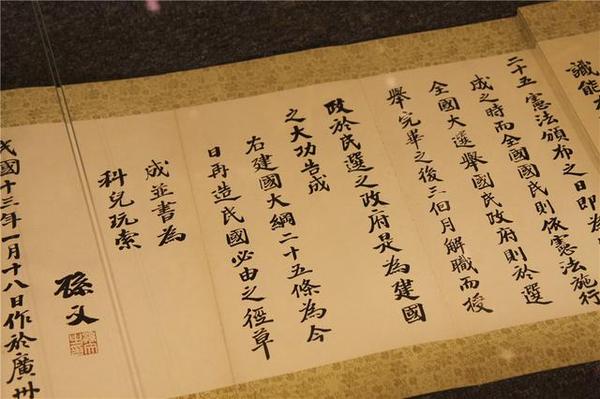 識能
二十五 憲法頒布之日即為
成之時而全國國民則依憲法施行
全國大選舉國民政府則於選
舉完畢之後三個月解職而授
政於民選之政府是為建國
之大功告成
右建國大綱二十五條為今
日再造民國必由之徑草
成並書為
科兒玩索
孫文
民國十三年一月十八日作於廣州